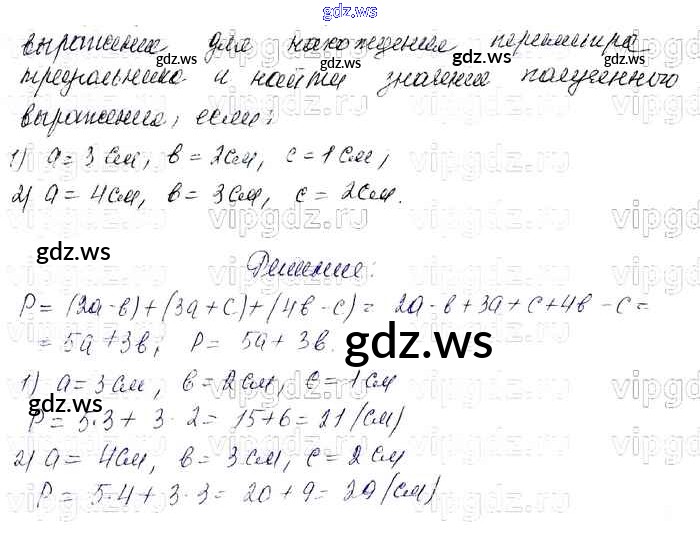 gdz.ws
выражение для нахождения периметра
треугольника и найти значение полученного
выражения, если:
1) a = 3 см, в = 2 см, c = 1 см,
2) a = 4 см, в = 3 см, c = 2 см.
Решение:
P = (2a - в) + (3a + c) + (4в - c) = 2a - в + 3a + c + 4в - c =
= 5a + 3в; P = 5a + 3в.
1) a = 3 см, в = 2 см, c = 1 см
P = 5·3 + 3·2 = 15 + 6 = 21 (см)
2) a = 4 см, в = 3 см, c = 2 см
P = 5·4 + 3·3 = 20 + 9 = 29 (см)
gdz.ws
gdz.ws
gdz.ws
gdz.ws
gdz.ws
gdz.ws
gdz.ws
vipgdz.ru